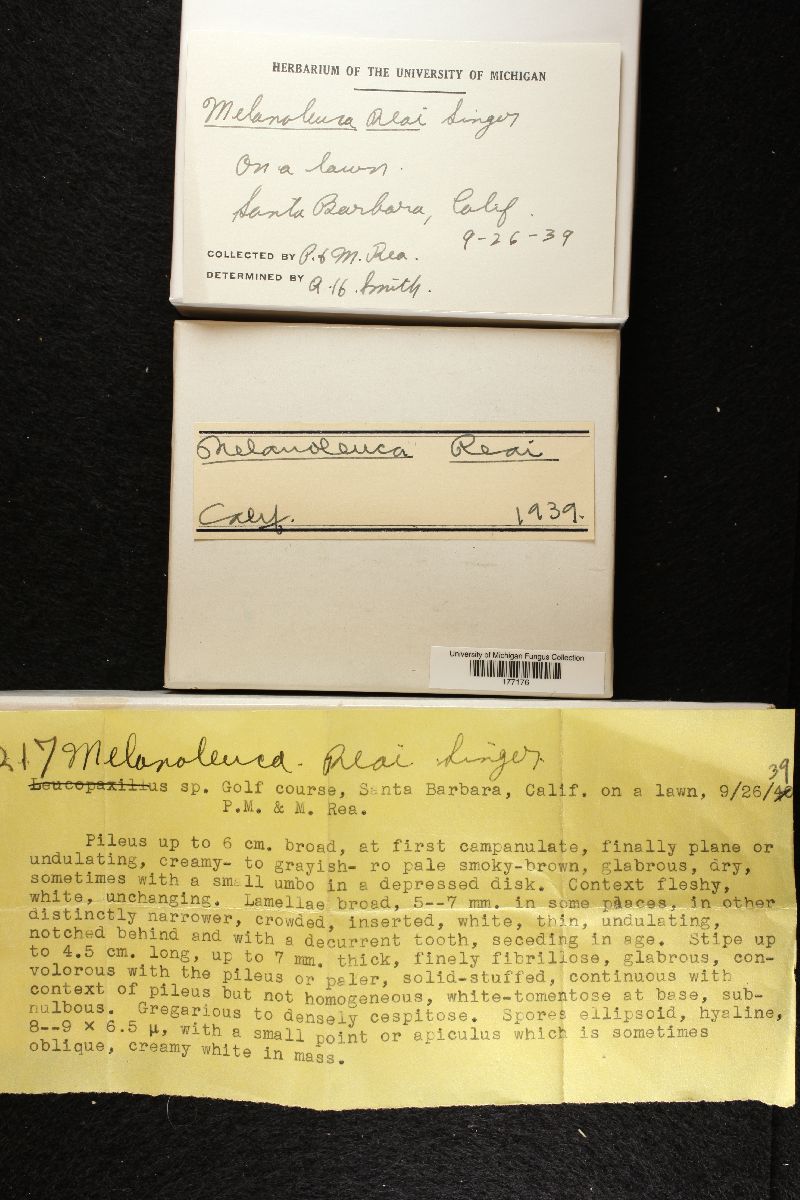 HERBARIUM OF THE UNIVERSITY OF MICHIGAN
Melanoleuca Reai Singer
On a lawn.
Santa Barbara, Calif.
9-26-39
COLLECTED BY P. & M. Rea.
DETERMINED BY A. H. Smith.
Melanoleuca Reai
Calif. 1939.
University of Michigan Fungus Collection
177176
217 Melanoleuca Reai Singer
39
Leucopaxillus sp. Golf course, Santa Barbara, Calif. on a lawn, 9/26/40
P.M. & M. Rea.
Pileus up to 6 cm. broad, at first campanulate, finally plane or
undulating, creamy- to grayish- ro pale smoky-brown, glabrous, dry,
sometimes with a small umbo in a depressed disk. Context fleshy,
white, unchanging. Lamellae broad, 5--7 mm. in some places, in other
distinctly narrower, crowded, inserted, white, thin, undulating,
notched behind and with a decurrent tooth, seceding in age. Stipe up
to 4.5 cm. long, up to 7 mm. thick, finely fibrillose, glabrous, con-
volorous with the pileus or paler, solid-stuffed, continuous with
context of pileus but not homogeneous, white-tomentose at base, sub-
nulbous. Gregarious to densely cespitose. Spores ellipsoid, hyaline,
8--9 × 6.5 µ, with a small point or apiculus which is sometimes
oblique, creamy white in mass.